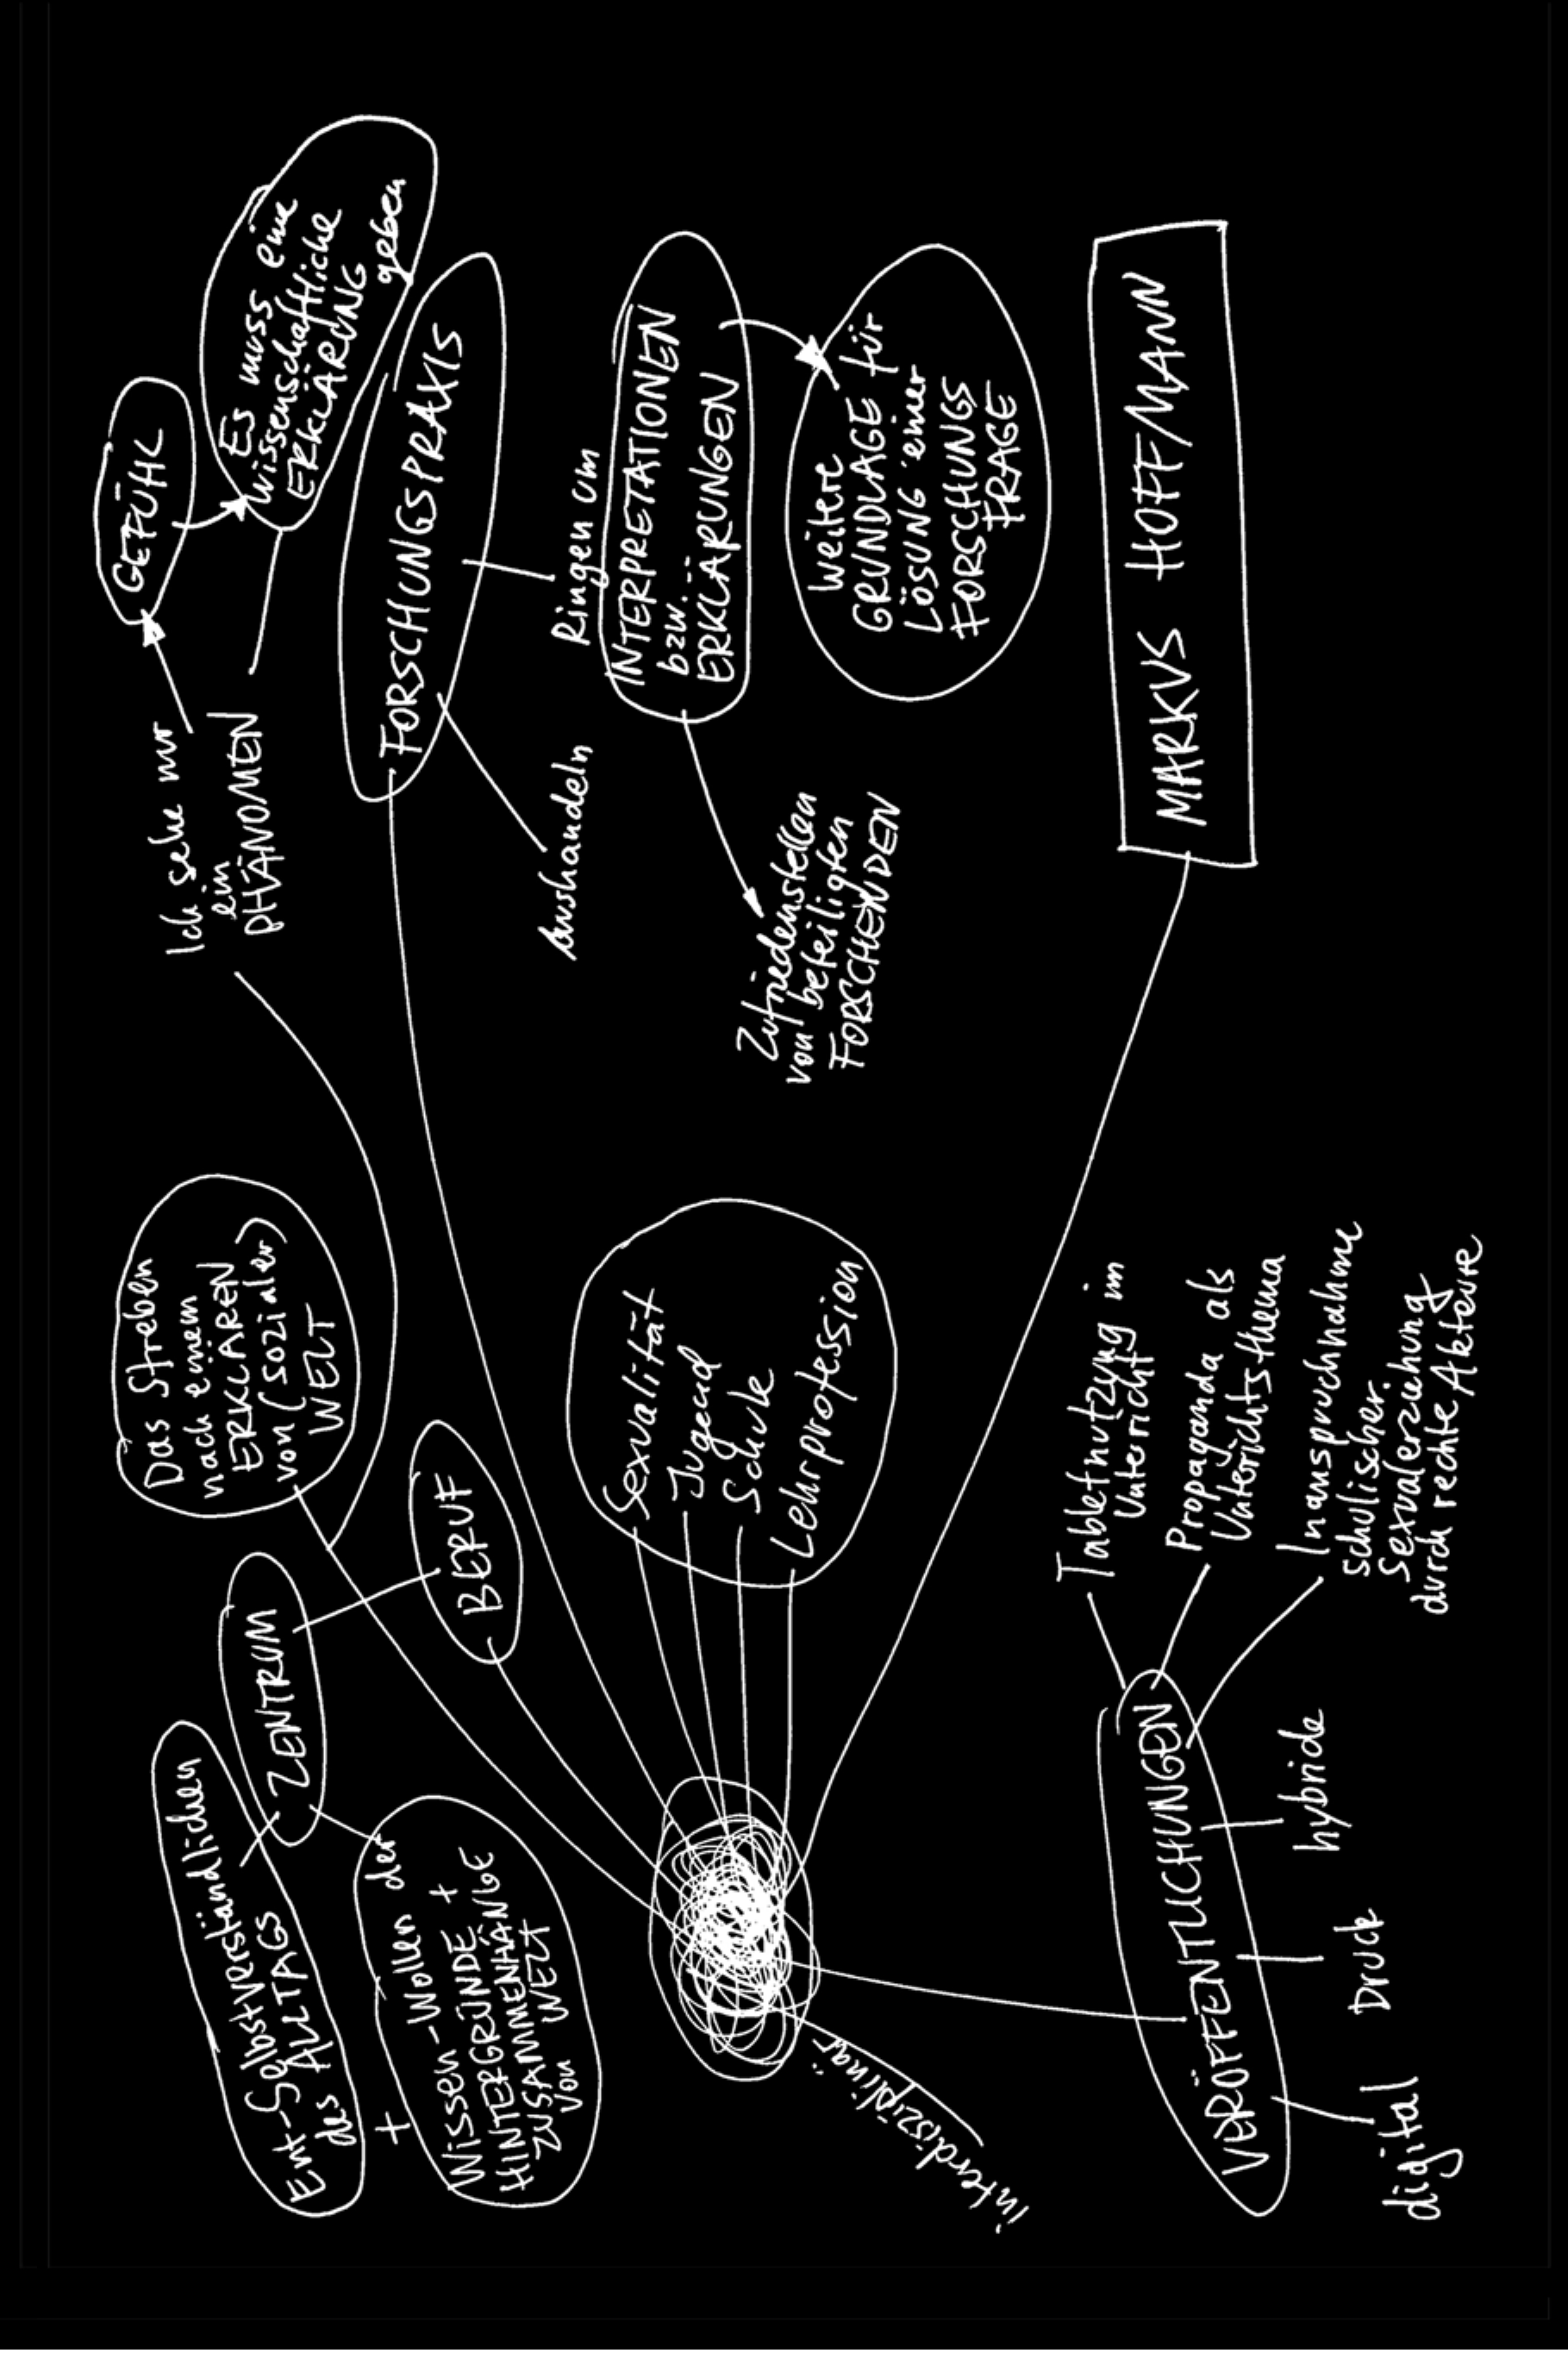 Ent-Selbstverständlichen
des ALLTAGS
ZENTRUM
+
Wissen-Wollen der
HINTERGRÜNDE +
ZUSAMMENHÄNGE
von WELT
BERUF
Das Streben
nach einem
ERKLÄREN
von (sozialer)
WELT
Ich sehe nur
ein
PHÄNOMEN
GEFÜHL
Es muss eine
wissenschaftliche
ERKLÄRUNG
geben
FORSCHUNGSPRAXIS
Aushandeln
Ringen um
INTERPRETATIONEN
bzw.
ERKLÄRUNGEN
Zufriedenstellen
von beteiligten
FORSCHENDEN
Weitere
GRUNDLAGE für
LÖSUNG einer
FORSCHUNGS
FRAGE
Sexualität
Jugend
Schule
Lehrprofession
interdisziplinär
VERÖFFENTLICHUNGEN
digital
Druck
hybride
Tabletnutzung im
Unterricht
Propaganda als
Unterichtsthema
Inanspruchnahme
schulischer
Sexualerziehung
durch rechte Akteure
MARKUS HOFFMANN